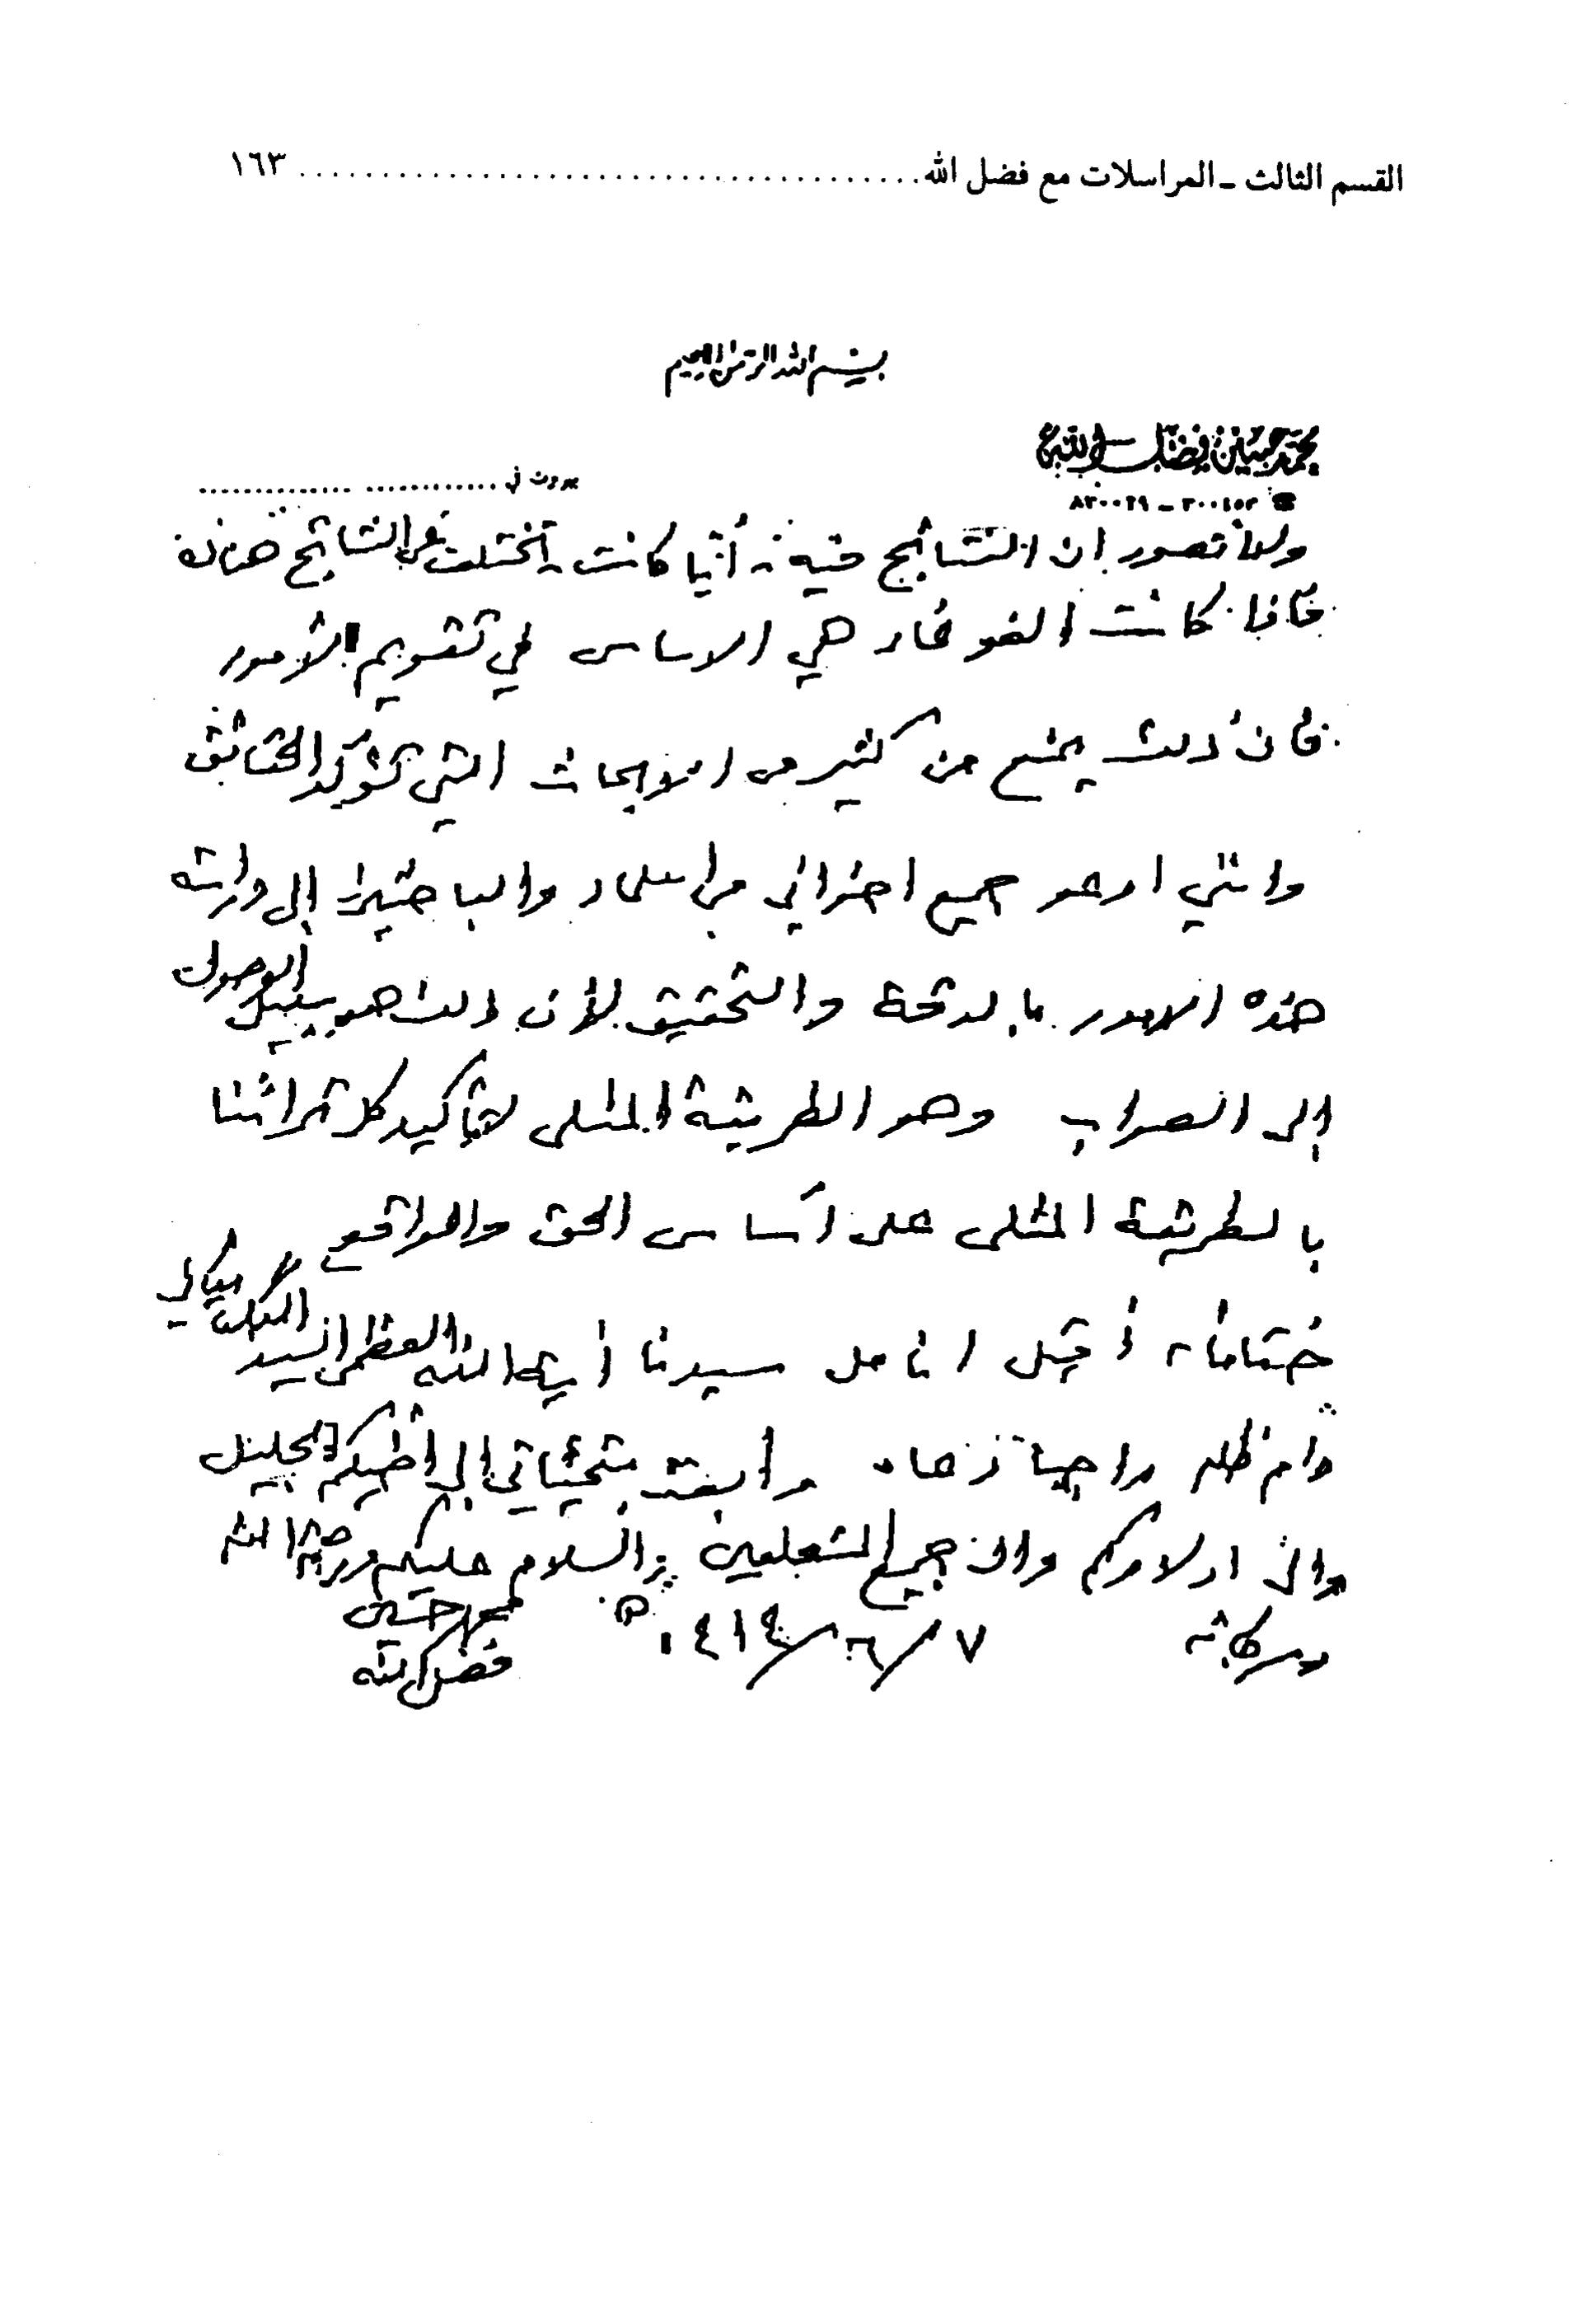 القسم الثالث ـ المراسلات مع فضل الله ........................................ ١٦٣
بسم الله الرحمن الرحيم
محمد حسين فضل الله
بيروت في ............ ............
☎ ٣٠٠١٥٢ ـ ٨٣٠٠٢٩
ولا نتصور ان النتائج فيه ـ أيا كانت ـ تختلف عن النتائج هناك
فاذا كانت الغوغاء هي الاساس في تقويم الأمور
فان ذلك يمنع من كثير من الابحاث التي تؤكد الحقائق
وانني ادعو جميع اخواني من العلماء والباحثين إلى دراسة
هذه الامور بالدقة والتحقيق لأن ذلك هو سبيل الوصول
إلى الصواب وهو الطريقة المثلى لتأكيد كل تراثنا
بالطريقة المثلى على أساس الحق والواقع
ختاماً أقبل انامل سيدنا آية الله العظمى السيد
دام ظله راجياً دعاه وأبعث بتحياتي إلى الجليل
والى اولادكم والى جميع المتعلقين والسلام عليكم ورحمة الله
وبركاته ٧/٦/١٤١٤ هـ محمد حسين
فضل الله